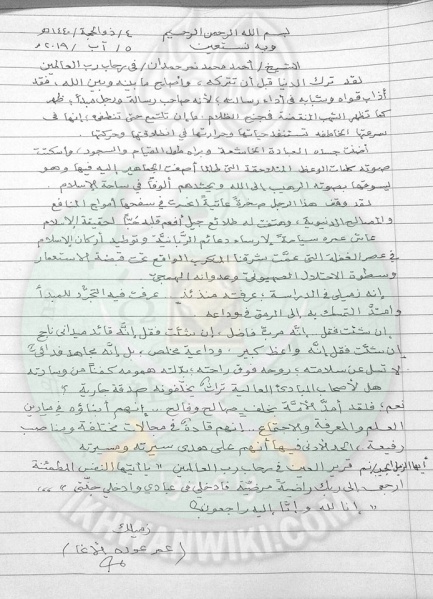 بسم الله الرحمن الرحيم ٤/ذو الحجة/١٤٤٠هـ
وبه نستعين ٥/آب/٢٠١٩م
الشيخ/ أحمد محمد نمر حمدان/ في رحاب رب العالمين
لقد ترك الدنيا قبل أن تتركه، وأصلح ما بينه وبين الله، فقد
أذاب قواه وشبابه في أداء رسالته، لأنه صاحب رسالة ورجل مبدأ، ظهر
كما تظهر الشهب المنقضة في جنح الظلام، ما إن تلتمع حتى تنطفئ، إنها في
سرعتها الخاطفة تستنفد حياتها وحرارتها في انطلاقها وحركتها.
أضنت جسده العبادة الخاشعة، وبراه طول القيام والسجود، وأسكتت
صوته كلمات الوعظ المتلاحقة التي طالما أصغت الجماهير إليه فيها وهو
يسوقها بصوته الرهيب إلى الله ويحشدهم ألوفًا في ساحة الإسلام.
لقد وقف هذا الرجل صخرة عاتية انحسرت في سفحها أمواج المنافع
والمصالح الدنيوية، وهتفت له طلائع جيل أفعم قلبه حبًا لحقيقة الإسلام
عاش عمره سياحة لإرساء دعائم الربانية، وتوطيد أركان الإسلام
في عصر الغفلة التي عمت بشرقنا العربي الواقع تحت قبضة الاستعمار
وسطوة الاحتلال الصهيوني وعدوانه الهمجي.
إنه زميلي في الدراسة؛ عرفته منذئذ عرفت فيه التجرد للمبدأ
والتمسك به إلى الرمق في وداعه
إن شئت فقل إنه مربٍّ فاضل، إن شئت فقل إنه قائد ميداني ناجح
إن شئت فقل إنه واعظ كبير وداعية مخلص، بل إنه مجاهد فدائي
لا تسل عن سلامته؛ روحه فوق راحته؛ بدّلته همومه كفنًا من وسادته
هل لأصحاب المبادئ العالية تراث يخلفونه صدقة جارية؟
نعم؛ فلقد أمد الأمة بخلف صالح وفالح... إنهم أبناؤه في ميادين
العلم والمعرفة والاجتماع. إنهم قادة في مجالات مختلفة ومناصب
رفيعة، الحمد لله أنهم على هدى سيرته ومسيرته
أيها الرجل نم قرير العين في رحاب رب العالمين "يا أيتها النفس المطمئنة
ارجعي إلى ربك راضية مرضية، فادخلي في عبادي وادخلي جنتي"
"إنا لله وإنا إليه راجعون"
زميلك
(عمر عودة الأغا)
IKHWANWIKI.COM